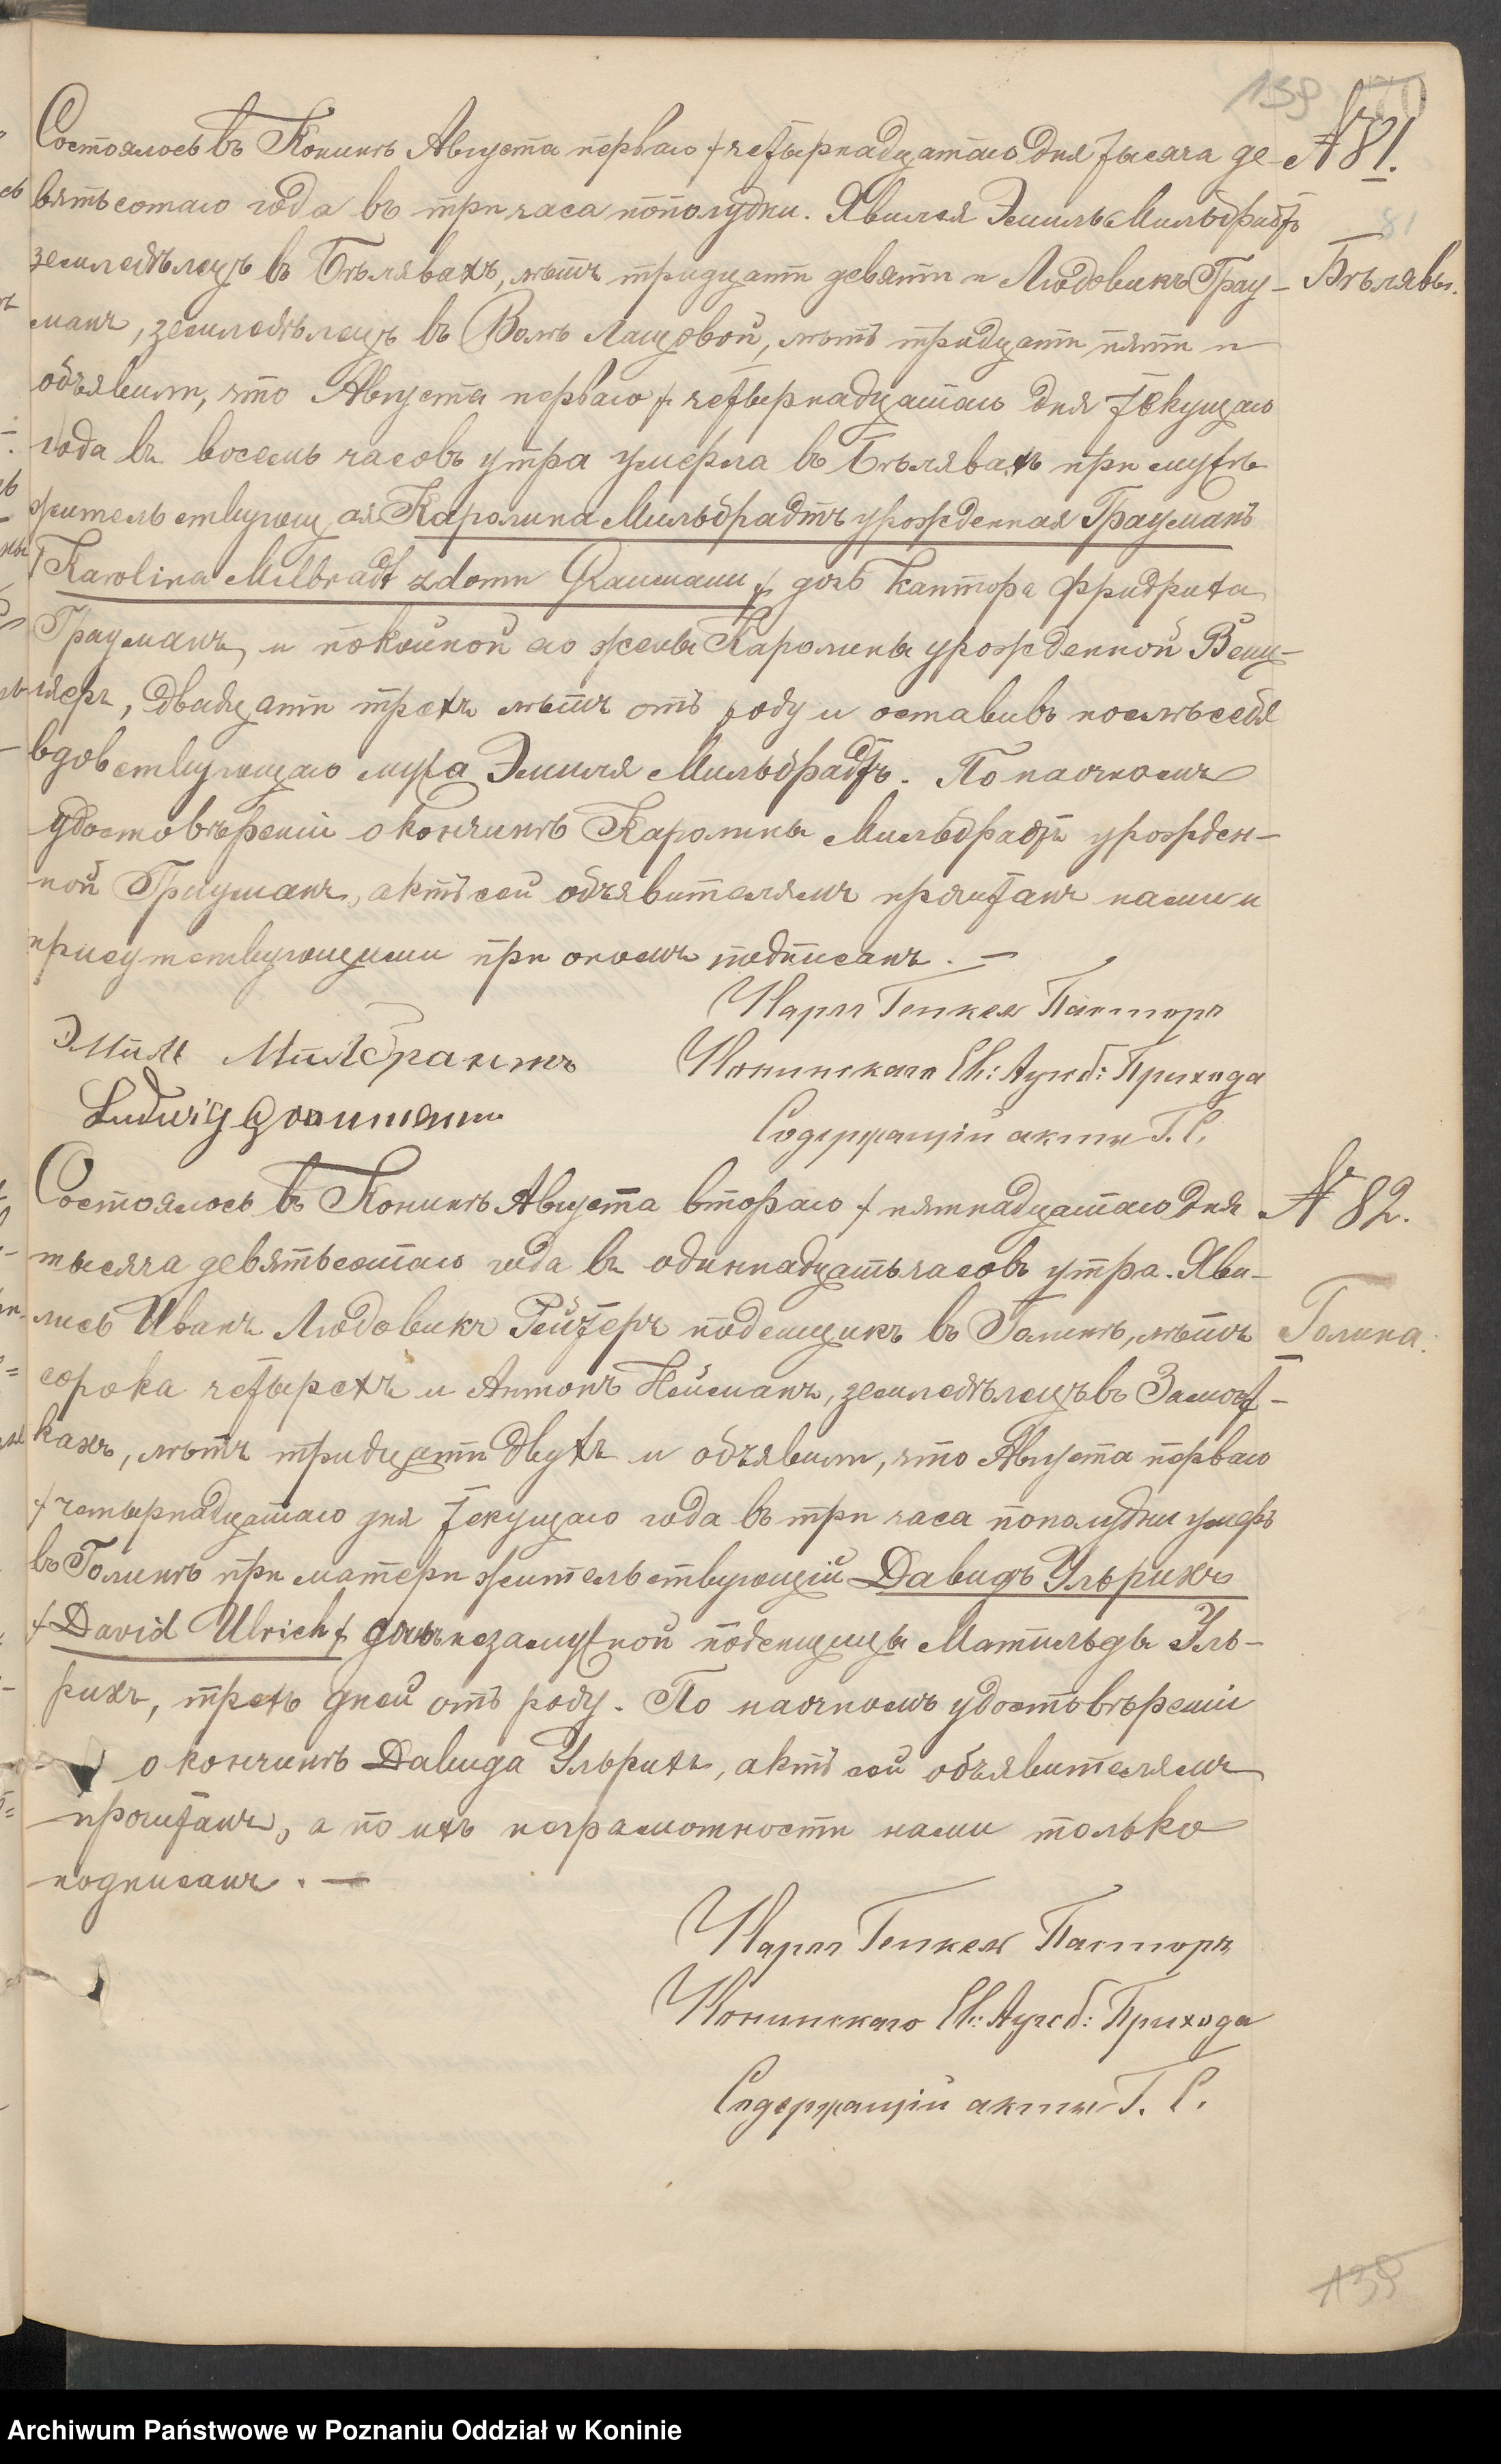 139 70
Состоялось въ Конинѣ Августа перваго / четырнадцатаго дня тысяча де- № 81.
вятьсотаго года въ три часа пополудни. Явился Эмиль Мильбрадтъ 81
земледѣлецъ въ Бѣлявахъ, лѣтъ тридцати девяти и Людовикъ Грау- Бѣлявы.
манъ, земледѣлецъ въ Волѣ Лащовой, лѣтъ тридцати пяти и
объявили, что Августа перваго / четырнадцатаго дня текущаго
года въ восемь часовъ утра умерла въ Бѣлявахъ при мужѣ
жительствующая Каролина Мильбрадтъ урожденная Грауманъ
/ Karolina Milbradt z domu Graumann / дочь кантора Фридриха
Грауманъ, и покойной его жены Каролины урожденной Венц-
леръ, двадцати трехъ лѣтъ отъ роду и оставивъ послѣ себя
вдовствующаго мужа Эмиля Мильбрадтъ. По наочномъ
удостовѣреніи о кончинѣ Каролины Мильбрадтъ урожден-
ной Грауманъ, актъ сей объявителямъ прочитанъ нами и
присутствующими при ономъ подписанъ. —
Карлъ Генкель Пасторъ
Эмиль Милбрантъ Конинскаго Ев: Аугсб: Прихода
Ludwig Graumann
Содержащій акты Г. С.
Состоялось въ Конинѣ Августа втораго / пятнадцатаго дня № 82.
тысяча девятьсотаго года въ одиннадцать часовъ утра. Яви-
лись Иванъ Людовикъ Рейтеръ поденщикъ въ Голинѣ, лѣтъ Голина.
сорока четырехъ и Антонъ Нейманъ, земледѣлецъ въ Замот-
кахъ, лѣтъ тридцати двухъ и объявили, что Августа перваго
/ четырнадцатаго дня текущаго года въ три часа пополудни умеръ
въ Голинѣ при матери жительствующій Давидъ Ульрихъ
/ David Ulrich / незамужной поденщицы Матильды Уль-
рихъ, трехъ дней отъ роду. По наочномъ удостовѣреніи
о кончинѣ Давида Ульрихъ, актъ сей объявителямъ
прочитанъ, а по ихъ неграмотности нами только
подписанъ. —
Карлъ Генкель Пасторъ
Конинскаго Ев: Аугсб: Прихода
Содержащій акты Г. С.
139
Archiwum Państwowe w Poznaniu Oddział w Koninie